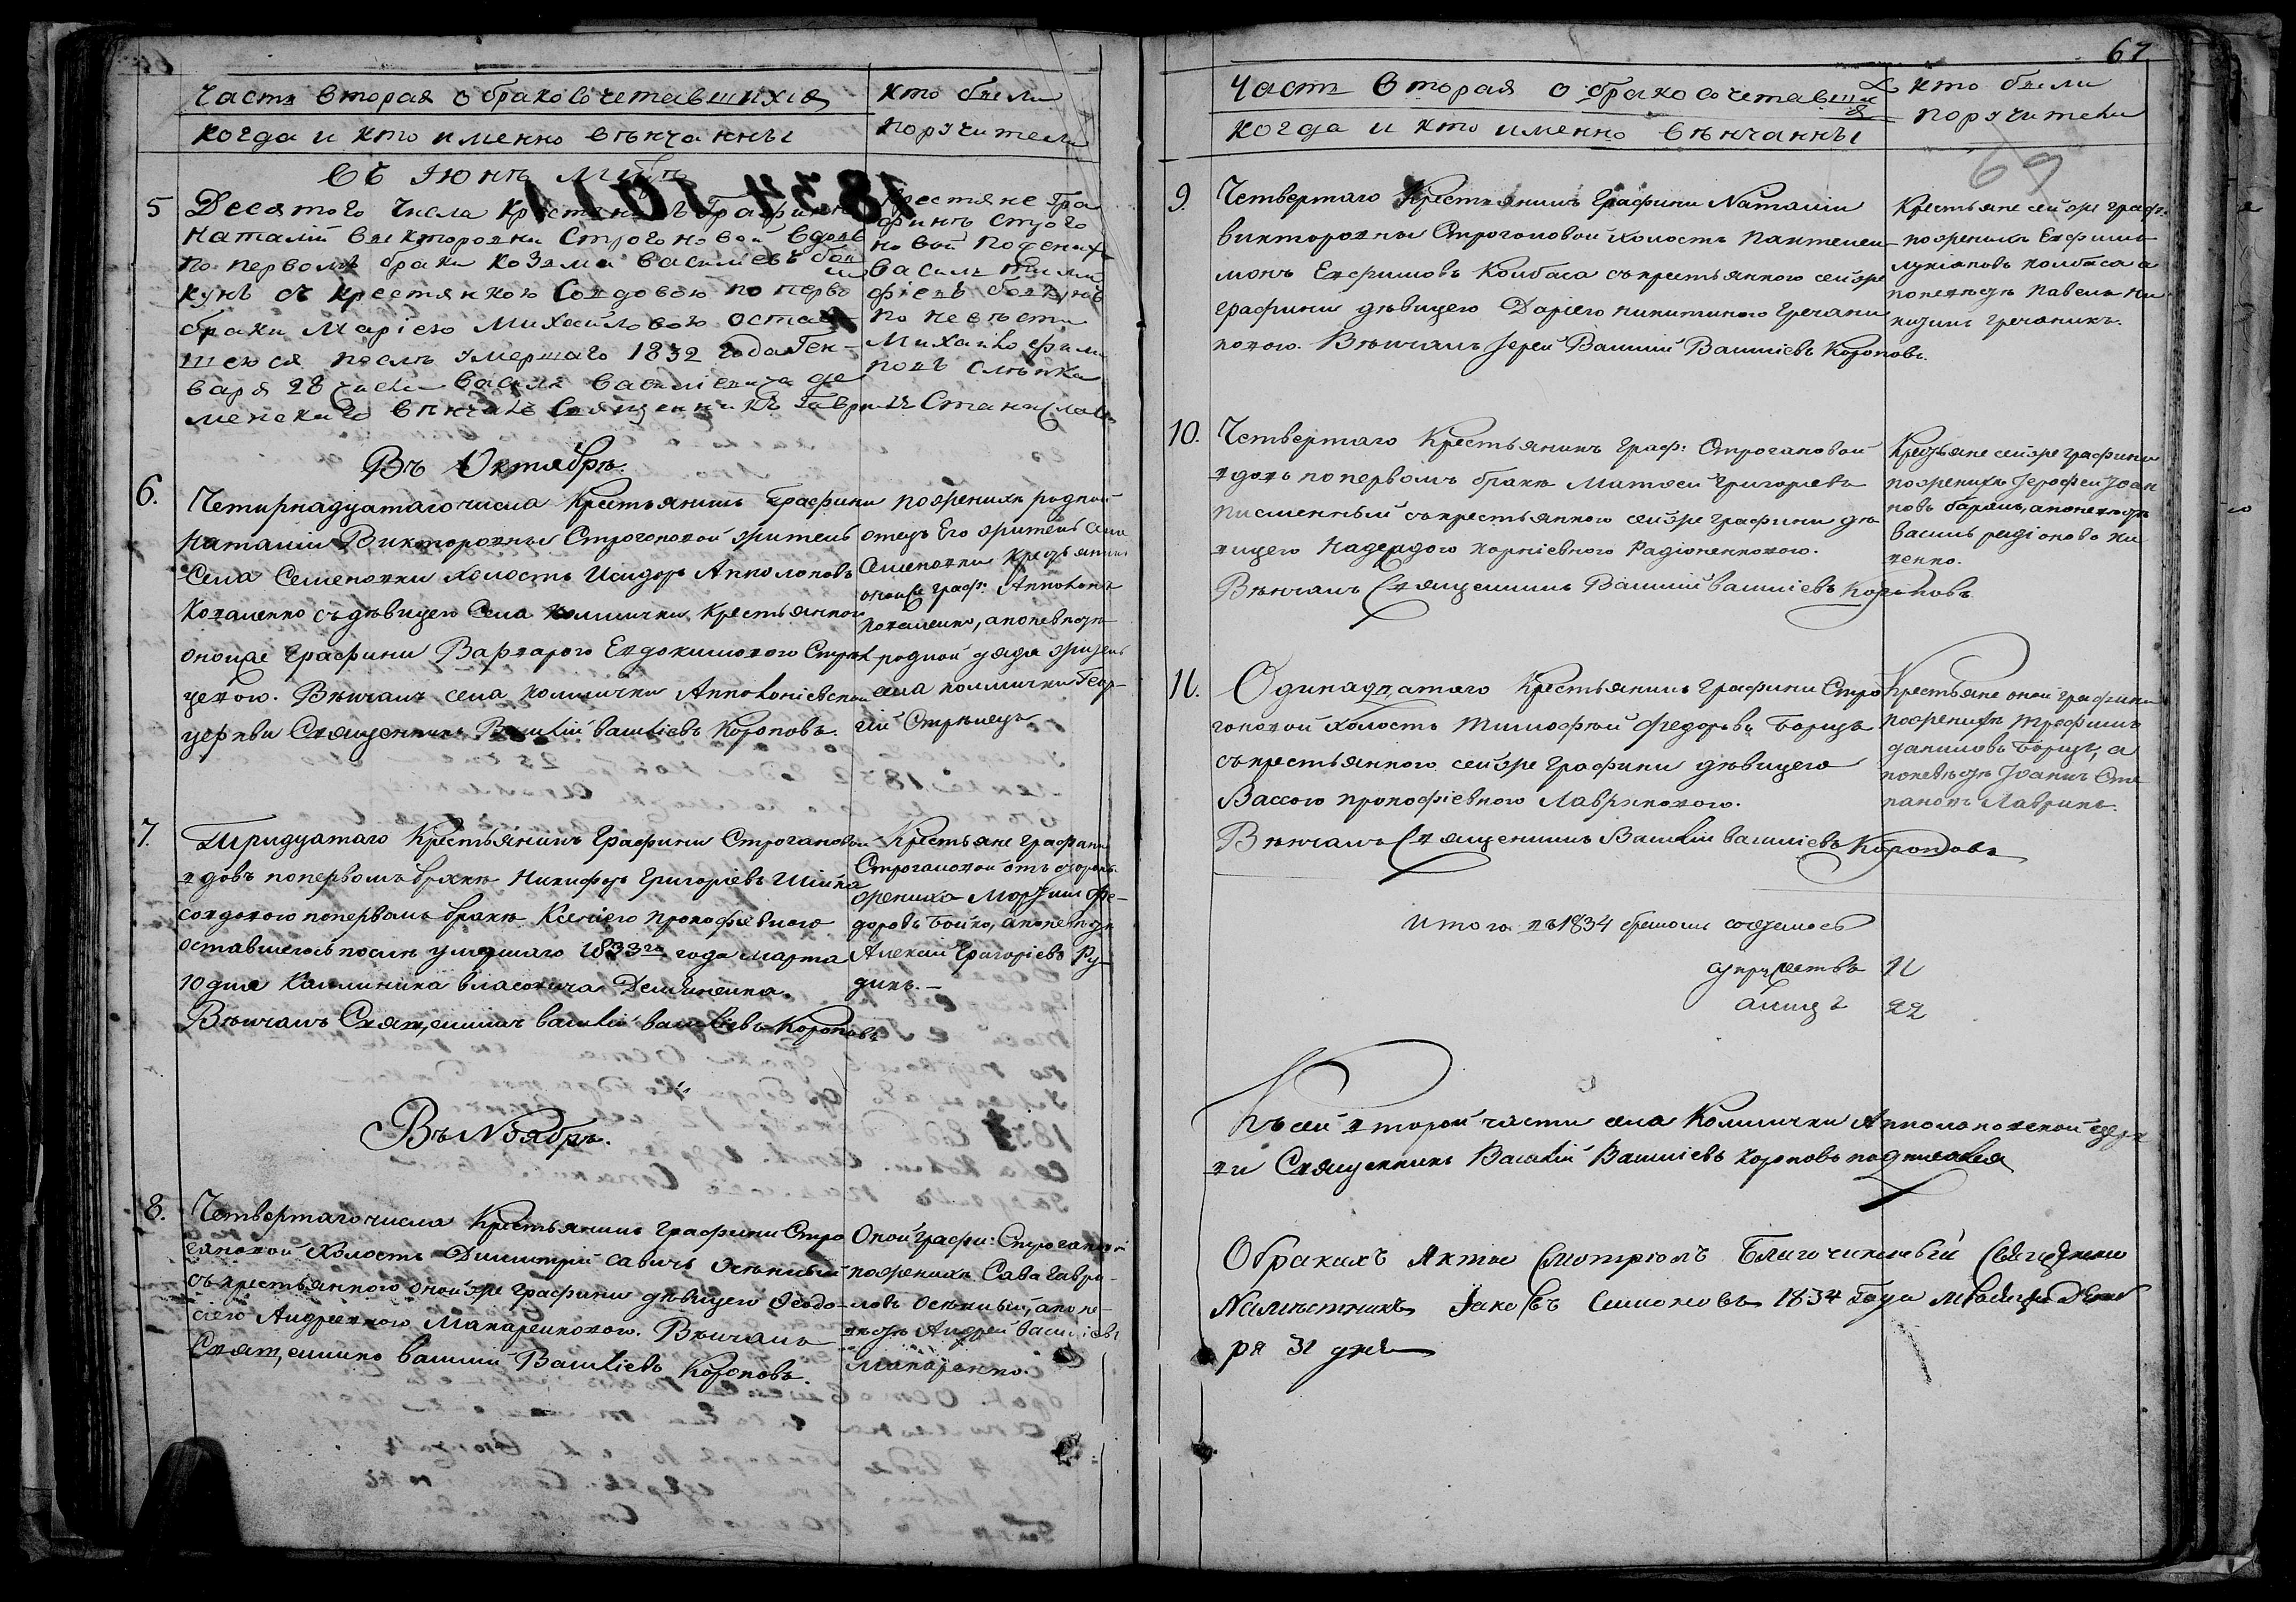 Часть вторая о бракосочетавшихся
кто были
поручители
когда и кто именно венчанны
въ Июнѣ
5
Десятого числа Графини
Наталiи Викторовни Строгоновой вдовъ
по первомъ браки Козма Васильевъ
кунъ съ крестянкою вдовою по перво
браки Марiею Михайловою остав
шеюся послѣ умершаго 1832 года Ген-
варя 28 числа Василя Василiевича де
менскаго вѣнчалъ Священникъ Гаврiилъ Станиславъ
Крестяне Гра
финѣ Строго
новой по жених
Василь
по невѣсти
Михайло фили
повъ
Въ Октябрѣ.
6.
Четирнадцатаго числа Крестьянинъ Графини
Наталiи Викторовны Строгоновой житель
Села Семеновки холостъ Исидоръ Апполоновъ
Коваленко съ дѣвицею Села Колмички Крестьянкою
оноиже Графини Варварою Евдокимовою Стрѣл
цевою. Вѣнчалъ села Колмички Апполонiевской
церкви Священникъ Василiй Васильевъ Короповъ.
по женихѣ родной
отецъ Его житель села
Семеновки Крестьянинъ
оноиже граф: Апполонъ
Коваленко, а по невѣстѣ
родной дядя житель
села Колмички Геор-
гiй Стрѣлецъ
7.
Тиридцатаго Крестьянинъ Графини Строгановой
вдовъ по первомъ бракѣ Никифоръ Григорiевъ Шiйка
со вдовою по первомъ бракѣ Ксенiею Прокофiевною
оставшеюсь послѣ умершаго 1833го года марта
10 дня Калиника Власовича Демченка.
Вѣнчалъ Священникъ Василiй Васильевъ Короповъ
Крестьяне графини
Строгановой отъ сторони
жениха Мартинъ Фе-
доровъ Бойко, а по невѣстѣ
Алексiй Григорiевъ Ру-
дикъ.
Въ Ноябрѣ.
8.
Четвертаго числа Крестьянинъ Графини Стро
гановой Холостъ Димитрiй Савичъ Осѣнный
съ крестьянкою оной же графини дѣвицею Феодо-
сiею Андреевною Макаренковою. Вѣнчалъ
Священникъ Василiй Васильевъ Короповъ.
Оной графи: Строгановой
по женихѣ Сава Гаври-
ловъ Осѣнный, а по не-
вѣстѣ Андрей Василiевъ
Макаренко.
67
69
Часть Вторая о бракосочетавших
ся
кто были
поручители
когда и кто именно вѣнчанны
9.
Четвертаго Крестьянинъ Графини Наталiи
Викторовны Строгоновой холостъ Пантелеи-
монъ Евфимовъ Колбаса съ крестьянкою сей же
графини дѣвицею Дарiею Никитиною Гречани
ковою. Вѣнчалъ Iерей Василiй Василiевъ Короповъ.
Крестьяне сей же граф:
по женихѣ Евфимъ
Лукiановъ Колбаса а
по невѣстѣ Павелъ Ни
Гречаникъ.
10.
Четвертаго Крестьянинъ Граф: Строгановой
вдовъ по первомъ бракѣ Матвеи Григорiевъ
Писменный съ крестьянкою сей же графини дѣ
вицею Надеждою Корнiевною Радiоненковою.
Вѣнчалъ Священникъ Василiй Василiевъ Короповъ
Крестьяне сей же графини
по женихѣ Iерофей Iоан
новъ а по невѣстѣ
Василь
ченко.
11.
Одинадцатаго Крестьянинъ Графини Стро
гоновой Холостъ Тимофѣй Федоровъ Борецъ
съ крестьянкою сей же графини дѣвицею
Вассою Прокофiевною Лавриковою.
Вѣнчалъ Священникъ Василiй Василiевъ Короповъ
Крестьяне оной графини
по женихѣ Трофимъ
Даниловъ Борецъ, а
по невѣстѣ Iоаннъ Сте
пановъ Лаврикъ.
Итого въ 1834 бракомъ сочеталось
супружествъ 11
а лицъ 22
Къ сей второй части села Колмички Апполоновской церк
ви Священникъ Василiй Василiевъ Короповъ подписался
О бракахъ Актъ Смотрѣлъ Благочинный Священно
Намѣстникъ Iаковъ Симоновъ 1834 Года мѣсяца Декаб
ря 31 дня